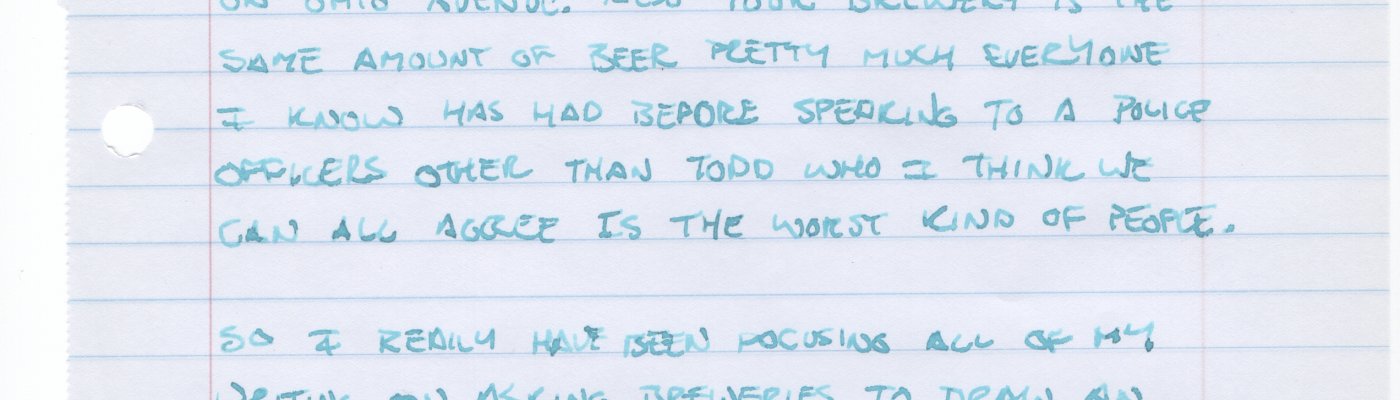 ON OHIO AVENUE. ALSO YOUR BREWERY IS THE
SAME AMOUNT OF BEER PRETTY MUCH EVERYONE
I KNOW HAS HAD BEFORE SPEAKING TO A POLICE
OFFICERS OTHER THAN TODD WHO I THINK WE
CAN ALL AGREE IS THE WORST KIND OF PEOPLE.
SO I REALLY HAVE BEEN FOCUSING ALL OF MY
WRITING ON ASKING BREWERIES TO DRAW AN